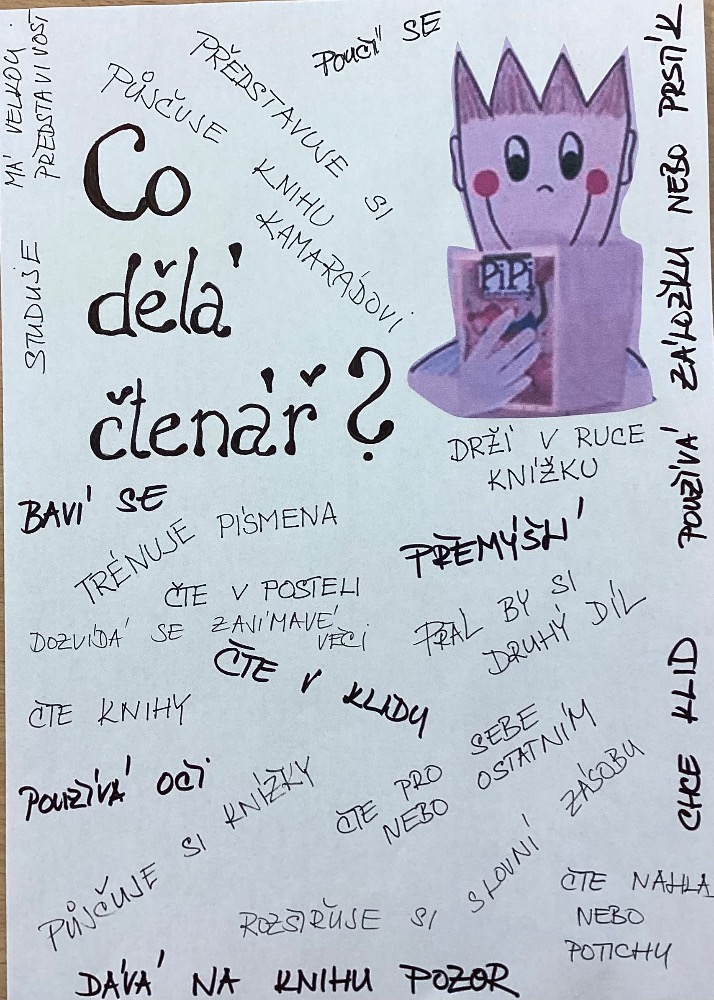 MÁ VELKOU
PŘEDSTAVIVOST
PŘEDSTAVUJE SI
POUČÍ SE
PŮJČUJE KNIHU
KAMARÁDOVI
Co
dělá
čtenář?
STUDUJE
PiPi
POUŽÍVÁ ZÁLOŽKU NEBO PRSTÍK
DRŽÍ V RUCE
KNÍŽKU
BAVÍ SE
TRÉNUJE PÍSMENA
PŘEMÝŠLÍ
ČTE V POSTELI
DOZVÍDÁ SE ZAJÍMAVÉ
VĚCI
PŘÁL BY SI
DRUHÝ DÍL
ČTE V KLIDU
ČTE KNIHY
CHCE KLID
POUŽÍVÁ OČI
ČTE PRO SEBE
NEBO OSTATNÍM
PŮJČUJE SI KNÍŽKY
ROZŠIŘUJE SI SLOVNÍ ZÁSOBU
ČTE NAHLA
NEBO
POTICHU
DÁVÁ NA KNIHU POZOR